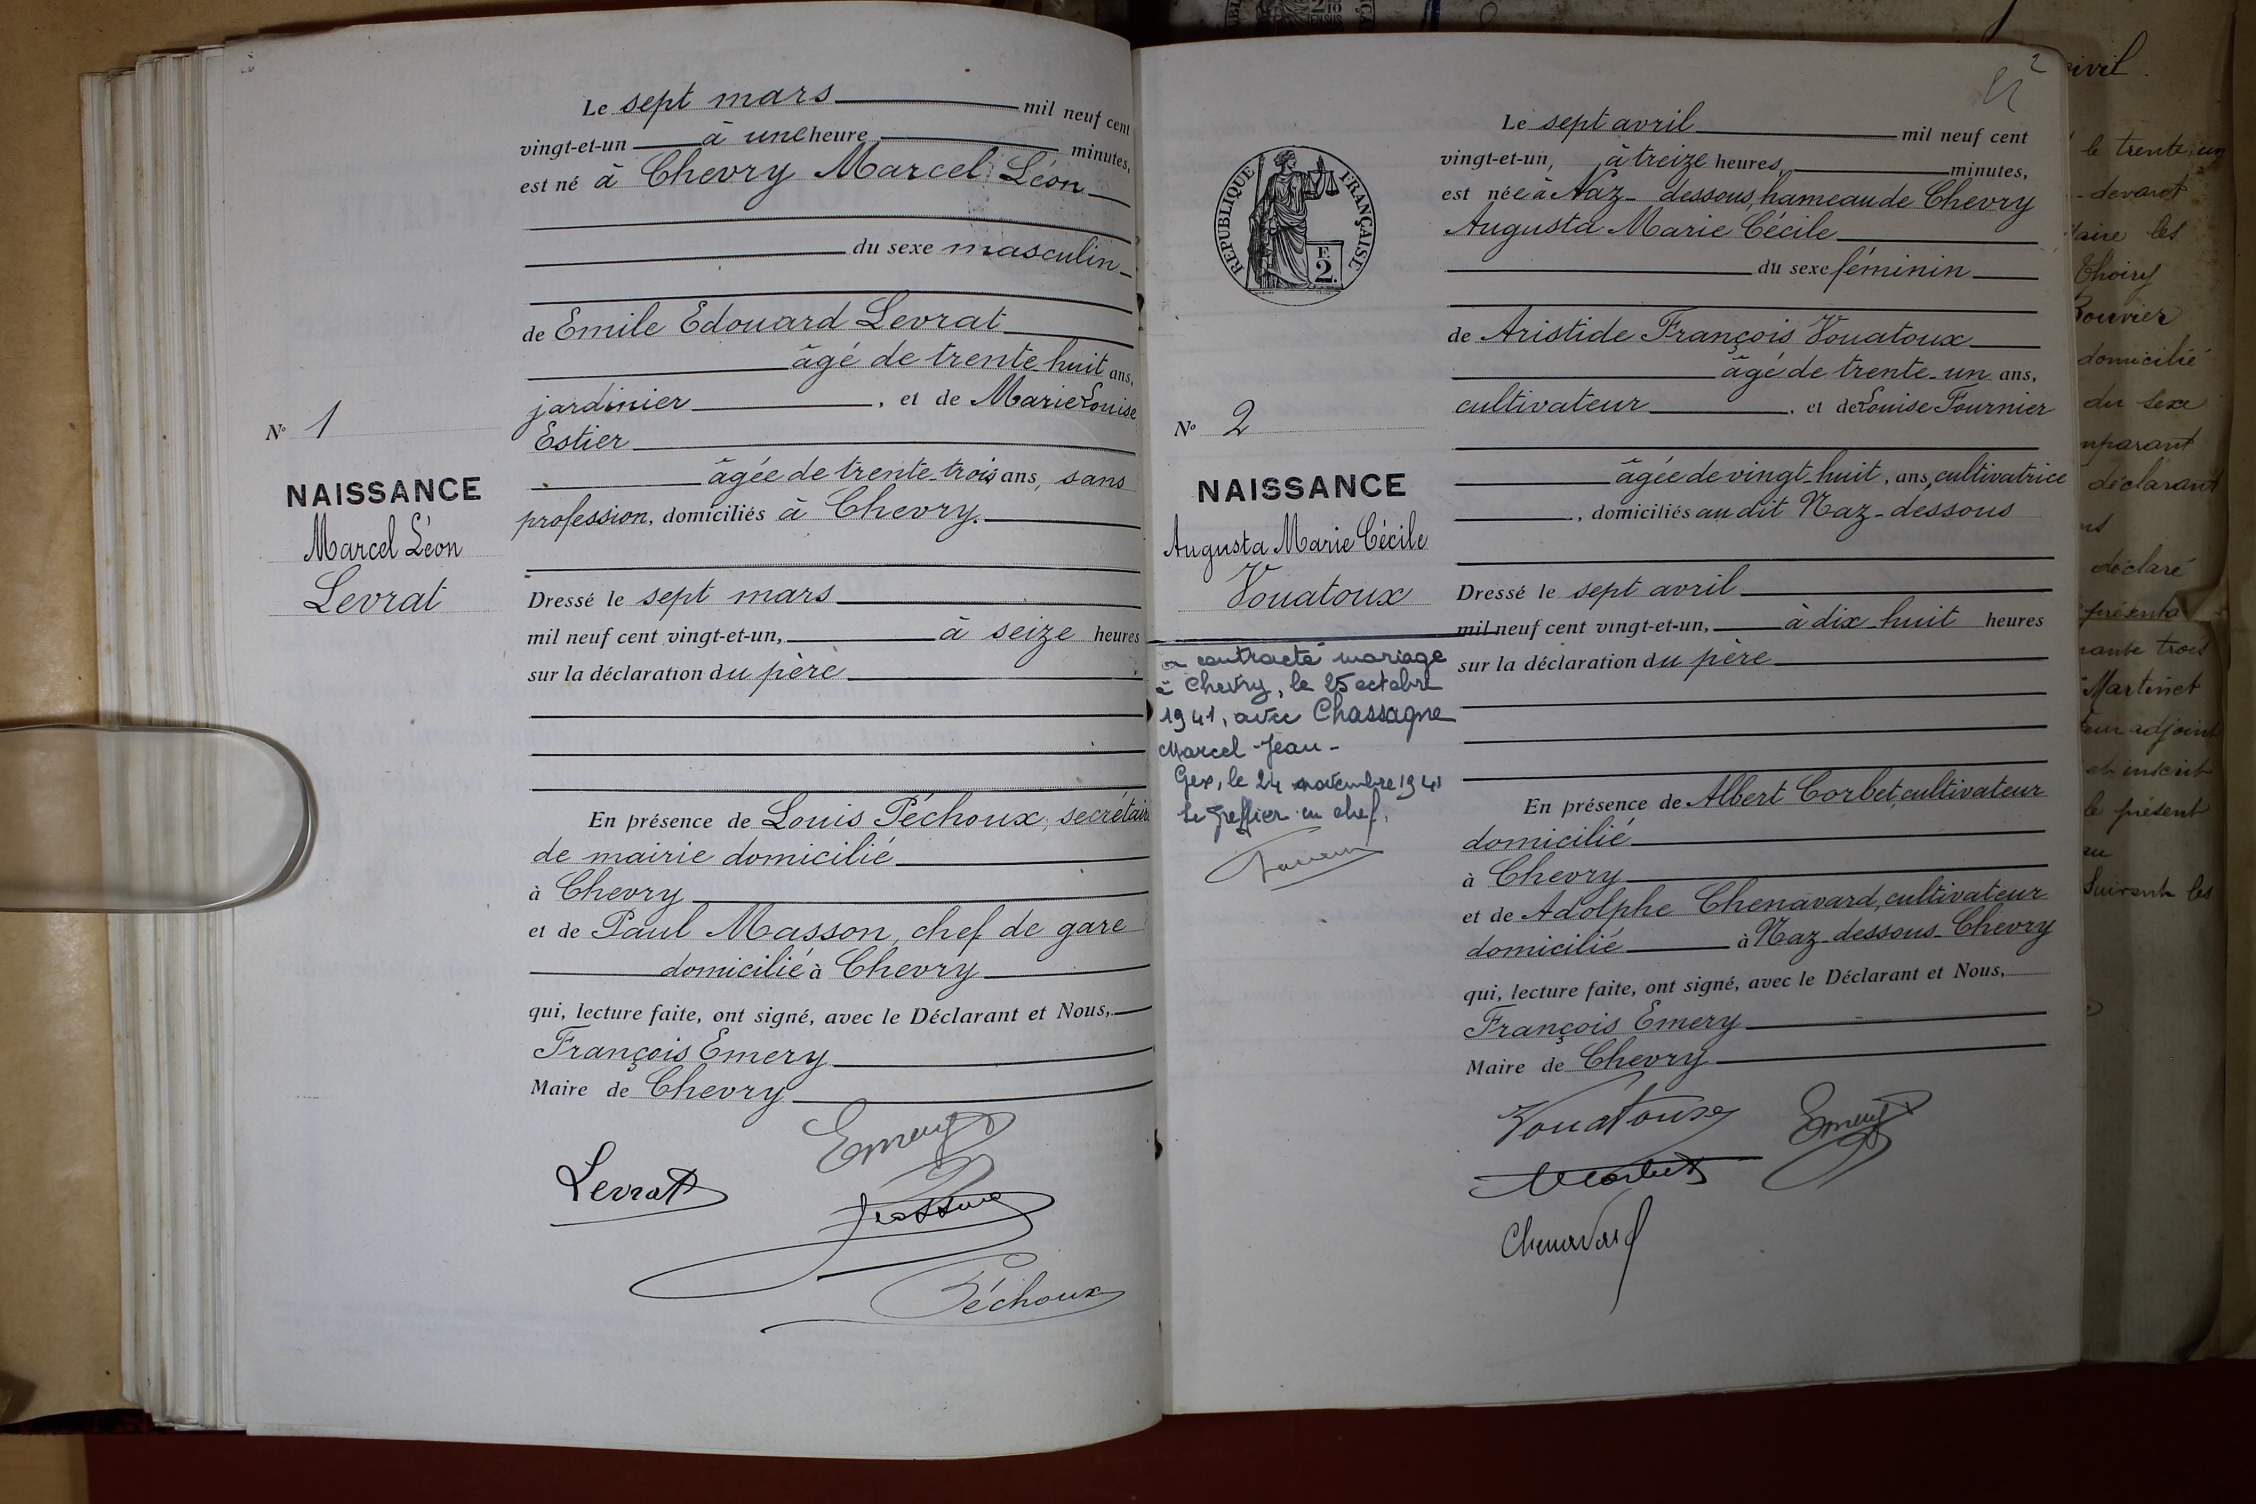 Le sept mars mil neuf cent
vingt-et-un à une heure minutes,
est né à Chevry Marcel Léon
du sexe masculin
de Emile Edouard Levrat
âgé de trente-huit ans,
jardinier, et de Marie Louise
Estier
âgée de trente-trois ans, sans
profession, domiciliés à Chevry.
N° 1
NAISSANCE
Marcel Léon
Levrat
Dressé le sept mars
mil neuf cent vingt-et-un, à seize heures
sur la déclaration du père
En présence de Louis Péchoux, secrétaire
de mairie domicilié
à Chevry
et de Paul Masson, chef de gare
domicilié à Chevry
qui, lecture faite, ont signé, avec le Déclarant et Nous,
François Emery
Maire de Chevry
Emery
Levrat
Péchoux
2
RÉPUBLIQUE FRANÇAISE
E
2.
Le sept avril mil neuf cent
vingt-et-un, à treize heures, minutes,
est née à Naz-dessous, hameau de Chevry
Augusta Marie Cécile
du sexe féminin
de Aristide François Vouatoux
âgé de trente-un ans,
cultivateur, et de Louise Fournier
âgée de vingt-huit, ans, cultivatrice
, domiciliés au dit Naz-dessous
N° 2
NAISSANCE
Augusta Marie Cécile
Vouatoux
a contracté mariage
à Chevry, le 25 octobre
1941, avec Chassagne
Marcel-Jean-
Gex, le 24 novembre 1941
Le Greffier en chef,
Dressé le sept avril
mil neuf cent vingt-et-un, à dix-huit heures
sur la déclaration du père
En présence de Albert Corbet, cultivateur
domicilié
à Chevry
et de Adolphe Chenavard, cultivateur
domicilié à Naz-dessous-Chevry
qui, lecture faite, ont signé, avec le Déclarant et Nous,
François Emery
Maire de Chevry
Vouatoux
Emery
Chenavard
civil.
le trente un
devant
les
Thoiry
Bouvier
domicilié
du sexe
déclarant
déclaré
trois
Martinet
adjoint
et inscrit
le présent
au
Suivent les